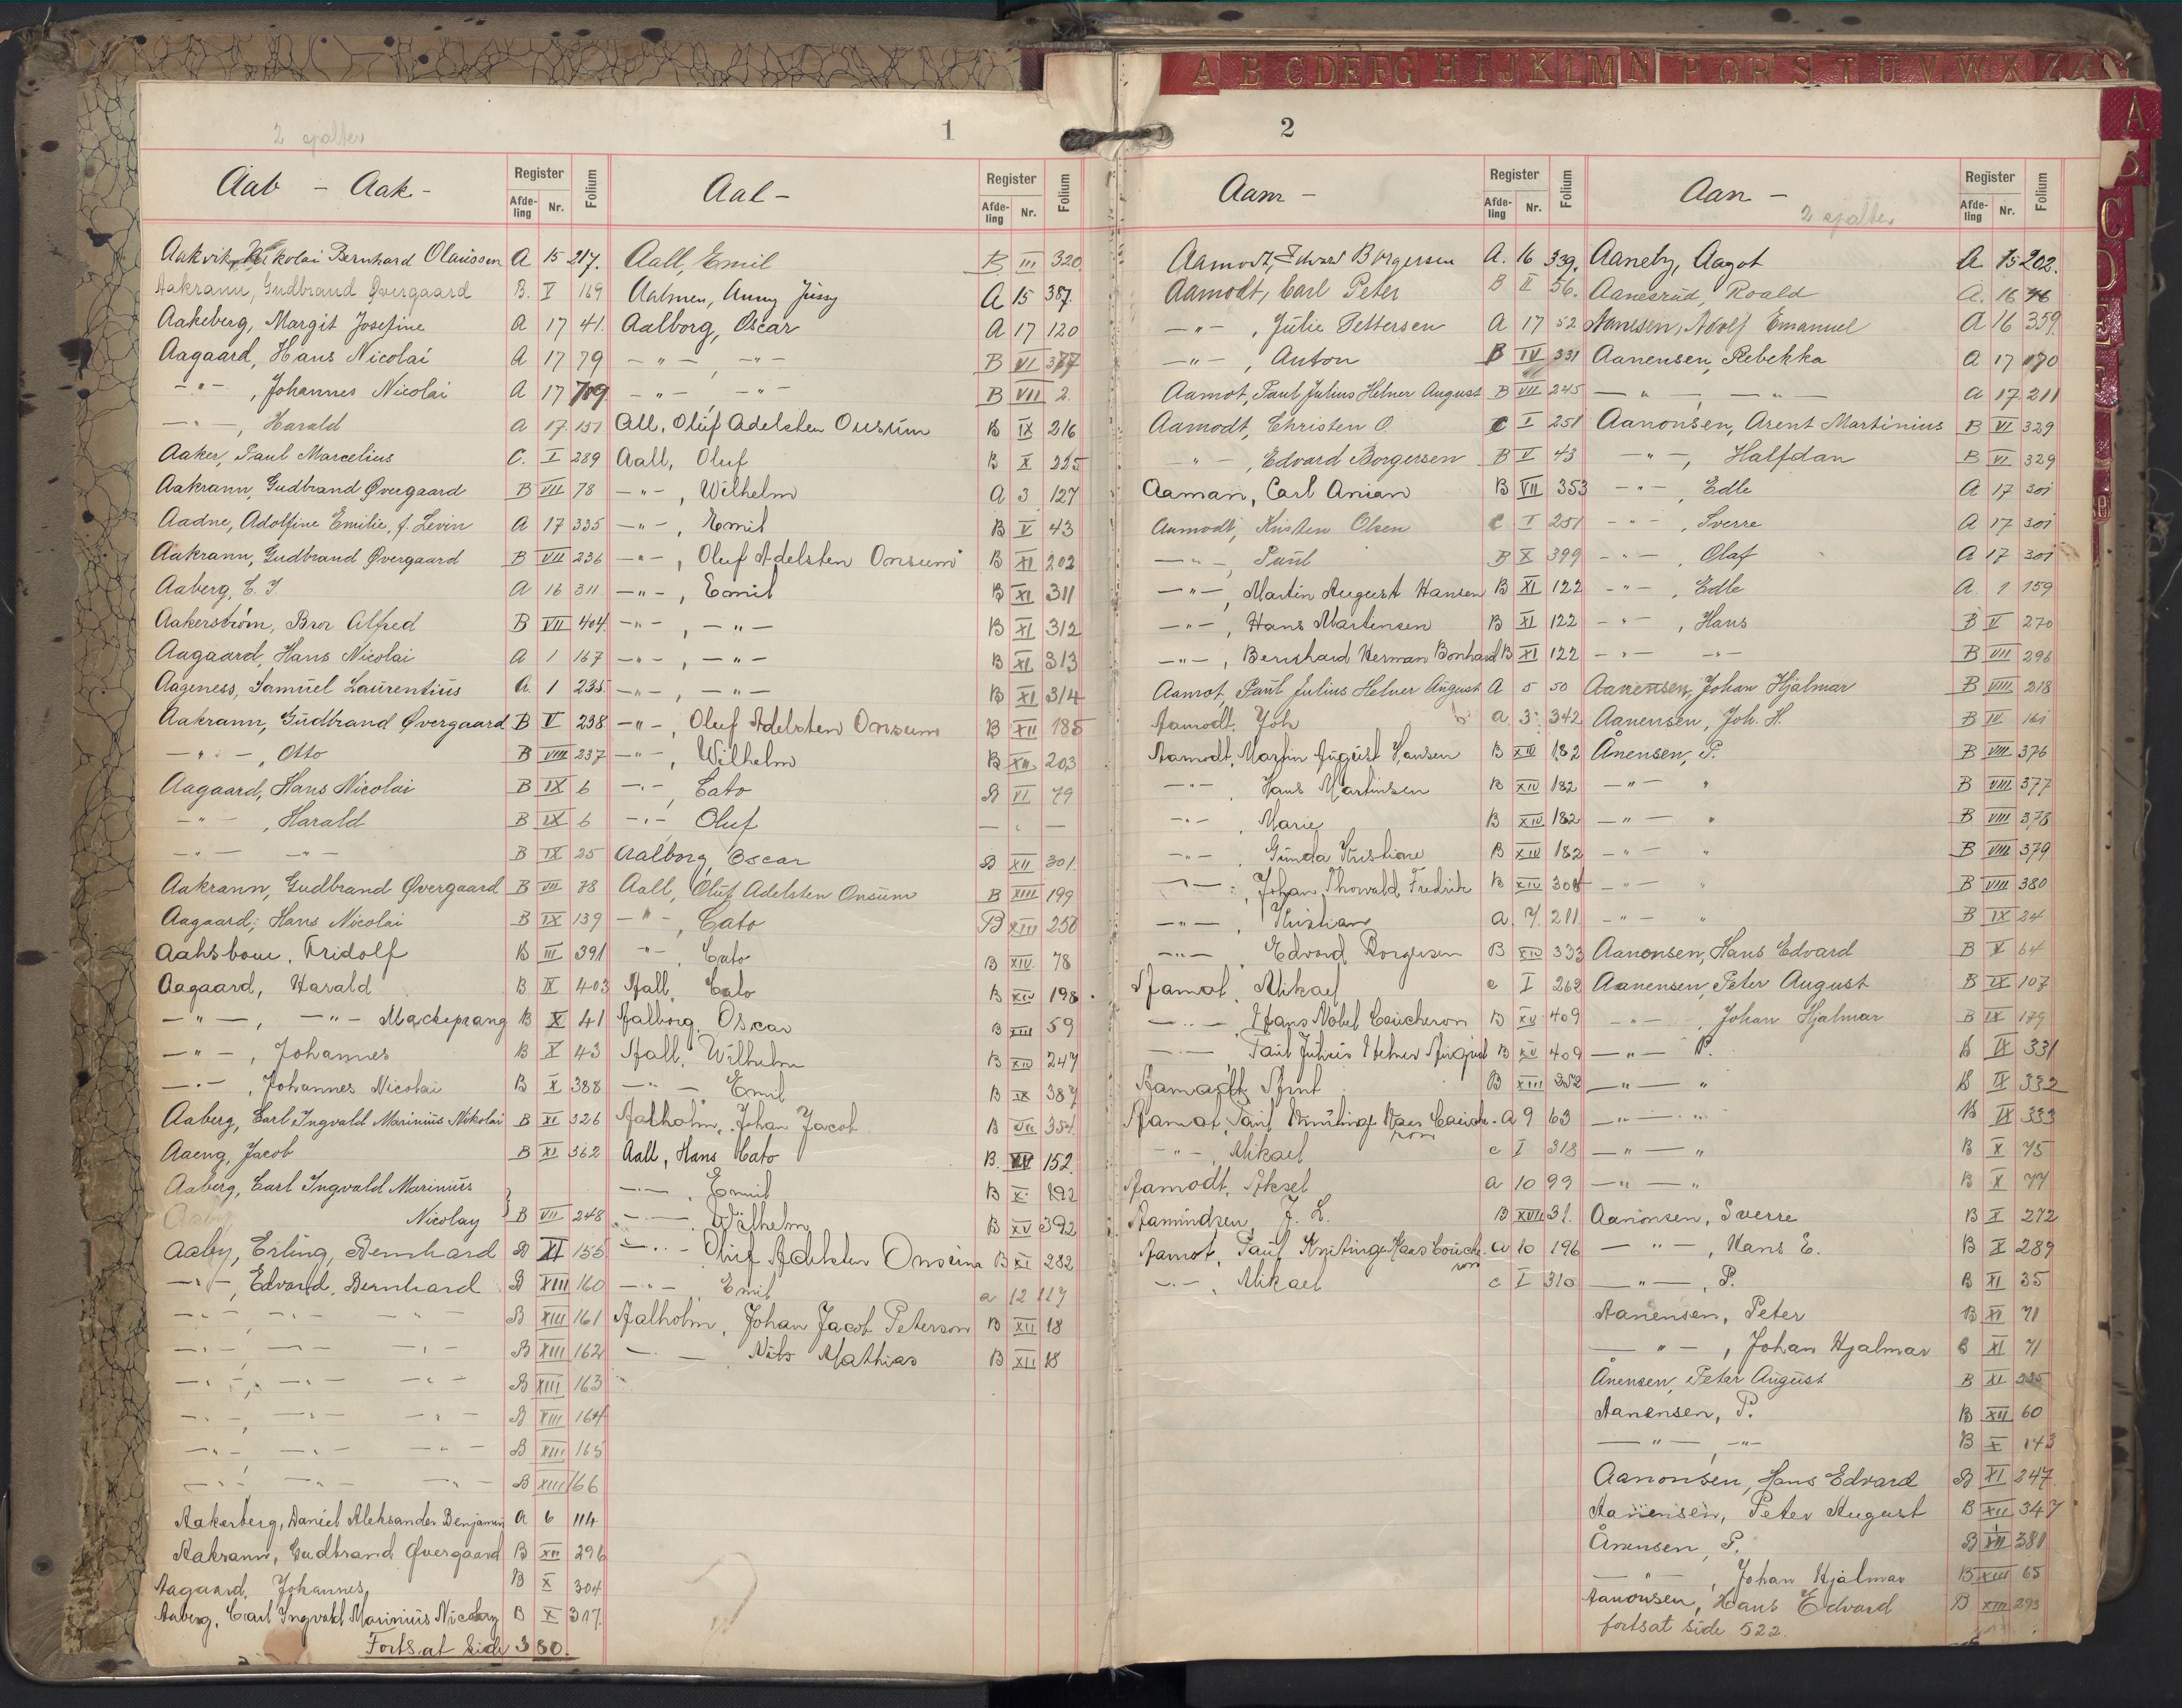 2 spalter
1
Aab - Aak -
Register
Afde-
ling
Nr.
Folium
Aakvik, Nikolai Bernhard Olaisson A 15 217.
Aakrann, Gudbrand Øvergaard B. V 169
Aakeberg, Margit Josefine A 17 41.
Aagaard, Hans Nicolai A 17 79
-"-, Johannes Nicolai A 17 79
-"-, Harald A 17. 151
Aaker, Paul Marcelius C. I 289
Aakrann, Gudbrand Øvergaard B VII 78
Aadne, Adolfine Emilie, f. Levin A 17 335
Aakrann, Gudbrand Øvergaard B VII 236
Aaberg, E. J. A 16 311
Aakerström, Bror Alfred B VII 404.
Aagaard, Hans Nicolai A 1 167
Aageness, Samuel Laurentius A. 1 235.
Aakrann, Gudbrand Øvergaard B V 238
-"-, Otto B VIII 237
Aagaard, Hans Nicolai B IX 6
-"-, Harald B IX 6
-"- -"- B IX 25
Aakrann, Gudbrand Øvergaard B VII 78
Aagaard, Hans Nicolai B IX 139
Aahsboue, Fridolf B III 391
Aagaard, Harald B IX 403
-"-, -"- Mackeprang B X 41
-"-, Johannes B X 43
-"-, Johannes Nicolai B X 388
Aaberg, Carl Ingvald Marinius Nikolai B XI 326
Aaeng, Jacob B XI 362
Aaberg, Carl Ingvald Marinius
Nicolay } B VII 248
Aaby, Erling, Bernhard B XI 155
-"-, Edvard, Bernhard B XIII 160
-"-, -"- -"- B XIII 161
-"-, -"- -"- B XIII 162
-"-, -"- -"- B XIII 163
-"-, -"- -"- B XIII 164
-"-, -"- -"- B XIII 165
-"-, -"- -"- B XIII 166
Aakerberg, Daniel Aleksander Benjamin A 6 114
Aakrann, Gudbrand Øvergaard B XII 296
Aagaard, Johannes B X 304
Aaberg, Carl Ingvald Marinius Nicolay B X 317.
Fortsat side 380.
Aal -
Register
Afde-
ling
Nr.
Folium
Aall, Emil B III 320
Aalmen, Anny Jussy A 15 387.
Aalborg, Oscar A 17 120
-"-, -"- B VI 377
-"-, -"- B VII 2.
Aall, Oluf Adelsten Onsum B IX 216
Aall, Oluf B X 225
-"-, Wilhelm A 3 127
-"-, Emil B V 43
-"-, Oluf Adelsten Onsum B XI 202
-"-, Emil B XI 311
-"-, -"- B XI 312
-"-, -"- B XI 313
-"-, -"- B XI 314
-"-, Oluf Adelsten Onsum B XII 185
-"-, Wilhelm B XII 203
-"-, Cato B VI 79
-"- Oluf - " -
Aalborg, Oscar B XII 301.
Aall, Oluf Adelsten Onsum B XIII 199
-"-, Cato B XIII 250
"-, Cato B XIV. 78
Aall, Cato B XIV 198.
Aalborg, Oscar B XIII 59
Aall, Wilhelm B XIV 247
-"- Emil B IX 387
Aalholm, Johan Jacob B VII 354.
Aall, Hans Cato B. XV 152.
-"-, Emil B X. 192
-"-, Wilhelm B XV 392
-"- Oluf Adelsten Onsum B XI 282
-"-, Emil a 12 117
Aalholm, Johan Jacob Peterson B XII 18
-"- Nils Mathias B XII 18
2
Aam -
Register
Afde-
ling
Nr.
Folium
Aamodt, Edvard Borgersen A. 16 339.
Aamodt, Carl Peter B II 56.
-"-, Julie Pettersen A 17 52
-"-, Anton B IV 331
Aamot, Paul Julius Helner August B VII 245
Aamodt, Christen O. C I 251
-"-, Edvard Borgersen B V 43
Aaman, Carl Anian B VII 353
Aamodt, Kristen Olsen C I 251
-"-, Paul B X 399
-"-, Martin August Hansen B XI 122
-"-, Hans Martinsen B XI 122
-"-, Bernhard Herman Bonhard B XI 122
Aamot, Paul Julius Helner August A 5 50
Aamodt, Joh a. 3. 342
Aamodt, Martin August Hansen B XIV 182
-"-, Hans Martinsen B XIV 182
-"-, Marie B XIV 182
-"-, Gunda Kristiane B XIV 182
-"-, Johan Thorvald Fredrik B XIV 308
-"-, Kristian a. 7. 211
-"- Edvard Borgersen B XIV 333
Aamot, Mikael c I 262
-"- Hans Nobel Coucheron B XV 409
-"- Paul Julius Helner August B XV 409
Aamodt, Arnt B XIII 252
Aamot, Paul Haas Couche-
ron a 9 63
-"-, Mikael c I 318
Aamodt, Aksel a 10 99
Aamundsen, J. L. B XVII 31.
Aamot, Paul Haas Couche-
ron a 10 196
-"-, Mikael c I 310
Aan -
2 spalter
Register
Afde-
ling
Nr.
Folium
Aaneby, Aagot A 15 202.
Aanesrud, Roald A. 16 46
Aanesen, Adolf Emanuel A 16 359.
Aanensen, Rebekka A 17 170
-"-, -"- A 17. 211
Aanonsen, Arent Martinius B VI 329
-"-, Halfdan B VI 329
-"-, Edle A 17 301
-"-, Sverre A 17 301
-"-, Olaf A 17 301
-"-, Edle A. 1 159
-"-, Hans B V 270
-"- -"- B VII 296
Aanensen, Johan Hjalmar B VIII 218
Aanensen, Joh. H. B IV 161
Ånensen, P. B VIII 376
-"- " B VIII 377
-"- " B VIII 378
-"- " B VIII 379
-"- " B VIII 380
-"- " B IX 24
Aanonsen, Hans Edvard B V 64
Aanensen, Peter August B IX 107
-"-, Johan Hjalmar B IX 179
-"- P. B IX 331
-"- " B IX 332
-"- " B IX 333
-"- " B X 75
-"- " B X 77
Aanonsen, Sverre B X 272
-"-, Hans E. B X 289
-"-, P. B XI 35
Aanensen, Peter B XI 71
-"-, Johan Hjalmar B XI 71
Ånensen, Peter August B XI 225
Aanensen, P. B XII 60
-"-, -"- B X 143
Aanonsen, Hans Edvard B XI 247.
Aanensen, Peter August B XII 347
Ånensen, P. B XII 381
-"-, Johan Hjalmar B XIII 65
Aanonsen, Hans Edvard B XIII 293
fortsat side 522.
A B C D E F G H I J K L M N P Q R S T U V W X Z
A
B
C
D
E